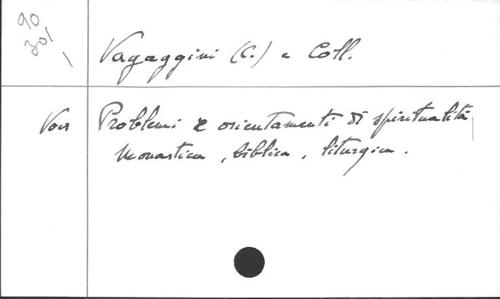 90
301
1
Vagaggini (C.) e Coll.
Voir Problemi e orientamenti di spiritualità
monastica, biblica, liturgica.